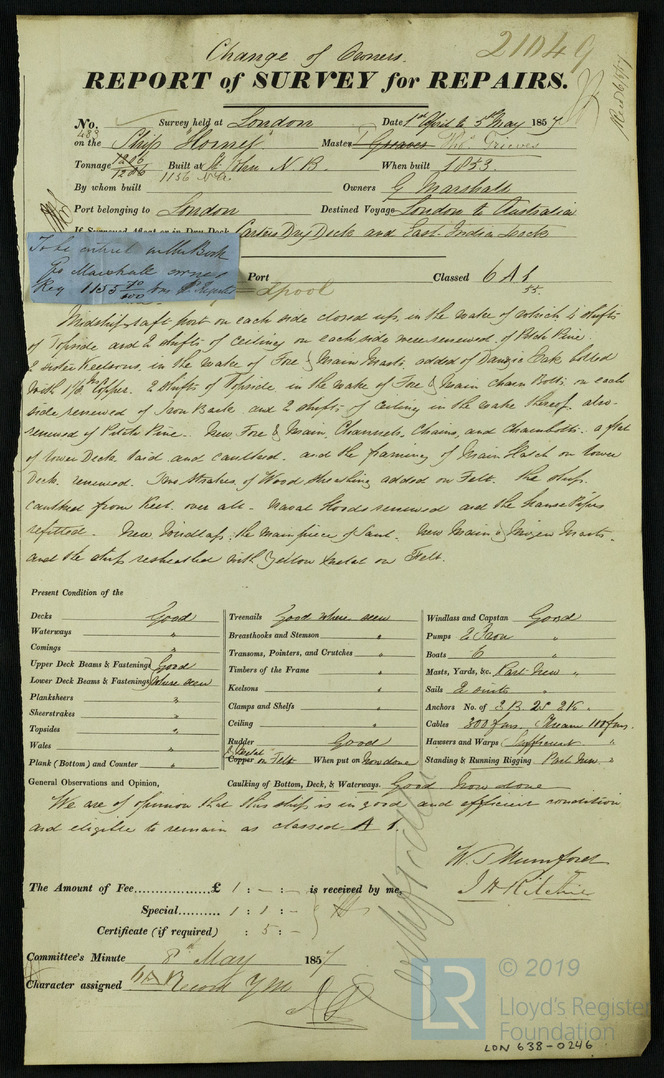 Change of Owners.
21049
REPORT of SURVEY for REPAIRS.
No. 483 Survey held at London Date 1st April to 5th May 1857
on the Ship "Hornet" Master Greaves Thos. Grieves
Tonnage 1206/1286 Built at St. John N.B. When built 1853.
1156 N.A.
By whom built Owners G Marshall
Port belonging to London Destined Voyage London to Australia
If Surveyed Afloat or in Dry Dock Carters Dry Dock and East India Docks
To be entered in the Book
Geo Marshall owner
Reg 1153 70/100 tons
Port Classed 6 A 1
55.
Lpool
Midship & aft port on each side closed up, in the wake of which 4 shifts
of Topside and 2 shifts of Ceiling on each side were renewed of Pitch Pine.
2 sister Keelsons, in the wake of Fore & Main Masts, added of Danzic Oak bolted
with 1 1/8 In Copper. 2 shifts of Topside in the wake of Fore & Main Chain Bolts on each
side renewed of Iron Bark and 2 shifts of ceiling in the wake thereof also
renewed of Pitch Pine. New Fore & Main Channels, Chains, and Chainbolts. a flat
of lower Deck laid and caulked. and the framing of Main Hatch on lower
Deck renewed. Two Strakes of Wood sheathing added on Felt. the ship
caulked from Keel over all. Naval Hoods renewed and the Hawse Pipes
refitted. New Windlass, the main piece of Saul. New Main & Mizen Masts.
and the ship resheathed with Yellow Metal on Felt.
Present Condition of the
Decks Good
Waterways "
Comings "
Upper Deck Beams & Fastenings Good
Lower Deck Beams & Fastenings where seen
Planksheers "
Sheerstrakes "
Topsides "
Wales "
Plank (Bottom) and Counter "
Treenails Good where seen
Breasthooks and Stemson "
Transoms, Pointers, and Crutches "
Timbers of the Frame "
Keelsons "
Clamps and Shelfs "
Ceiling "
Rudder Good
Y Metal
Copper on Felt When put on Now done
Windlass and Capstan Good
Pumps 2 Iron "
Boats 6 "
Masts, Yards, &c. Part New "
Sails 2 suits "
Anchors No. of 3 B. 2 S. 2 K.
Cables 300 fms. Stream 110 fms.
Hawsers and Warps Sufficient "
Standing & Running Rigging Part New. "
General Observations and Opinion, Caulking of Bottom, Deck, & Waterways. Good Now done
We are of opinion that this ship is in good and efficient condition
and eligible to remain as classed A 1.
W. J. Mumford
J H Ritchie
The Amount of Fee £ 1 : - : - is received by me,
Special 1 : 1 : -
Certificate (if required) : 5 : -
Committee's Minute 8th May 1857
Character assigned 6 A 1 Record YM
© 2019
LR
Lloyd's Register
Foundation
LON 638-0246